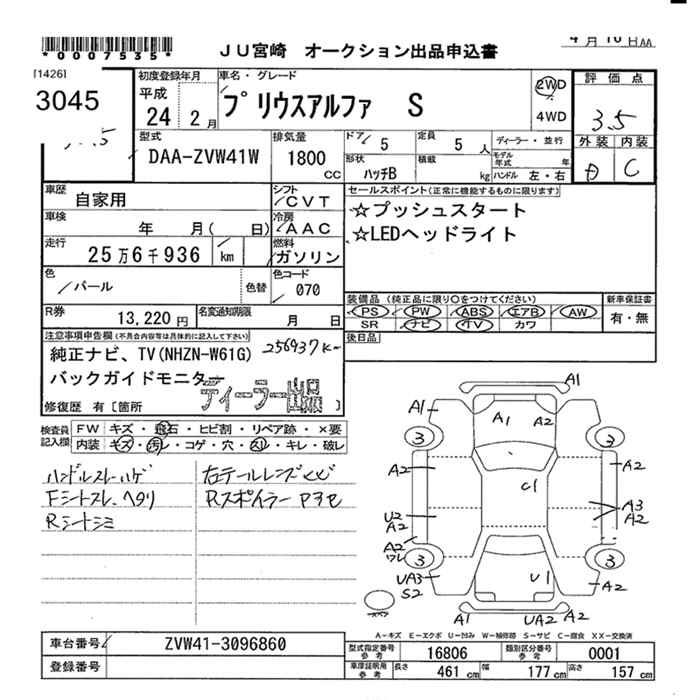 *0007535*
JU宮崎 オークション出品申込書
4月16日AA
[1426]
3045
初度登録年月
平成
24 2月
車名・グレード
プリウスアルファ S
2WD
4WD
評価点
3.5
外装 内装
D C
型式
DAA-ZVW41W
排気量
1800
CC
ドア
5
定員
5人
ディーラー・並行
形状
ハッチB
積載
kg
モデル年式 年
ハンドル 左・右
車歴
自家用
シフト
CVT
車検
年 月( 日)
冷房
AAC
走行
25万6千936
km
燃料
ガソリン
色
パール
色替
色コード
070
R券
13,220円
名変通知期限
月 日
セールスポイント(正常に機能するものに限ります)
☆プッシュスタート
☆LEDヘッドライト
装備品(純正品に限り○をつけてください)
PS PW ABS エアB AW
SR ナビ TV カワ
新車保証書
有・無
後日品
注意事項申告欄(不具合内容等は具体的に記入して下さい)
純正ナビ、TV(NHZN-W61G) 256937K
バックガイドモニター
ディーラー出品
修復歴 有[箇所 ]
検査員記入欄
FW キズ・飛石・ヒビ割・リペア跡・×要
内装 キズ・汚レ・コゲ・穴・スレ・キレ・破レ
ハンドルスレ・ハゲ 右テールレンズヒビ
Fシートスレ、ヘタリ Rスポイラー Pヌセ
Rシートシミ
A1
A1
A1 A2
3 3
A2 A2
C1
U2
A2
A3
A2
A2
ワレ
3 3
UA3
S2
U1
A2
A1 UA2 A2
スペア
A―キズ E―エクボ U―凹み W―補修跡 S―サビ C―腐食 XX―交換済
車台番号
ZVW41-3096860
登録番号
型式指定番号 参考
16806
類別区分番号 参考
0001
車庫証明用 参考
長さ 461 cm 幅 177 cm 高さ 157 cm